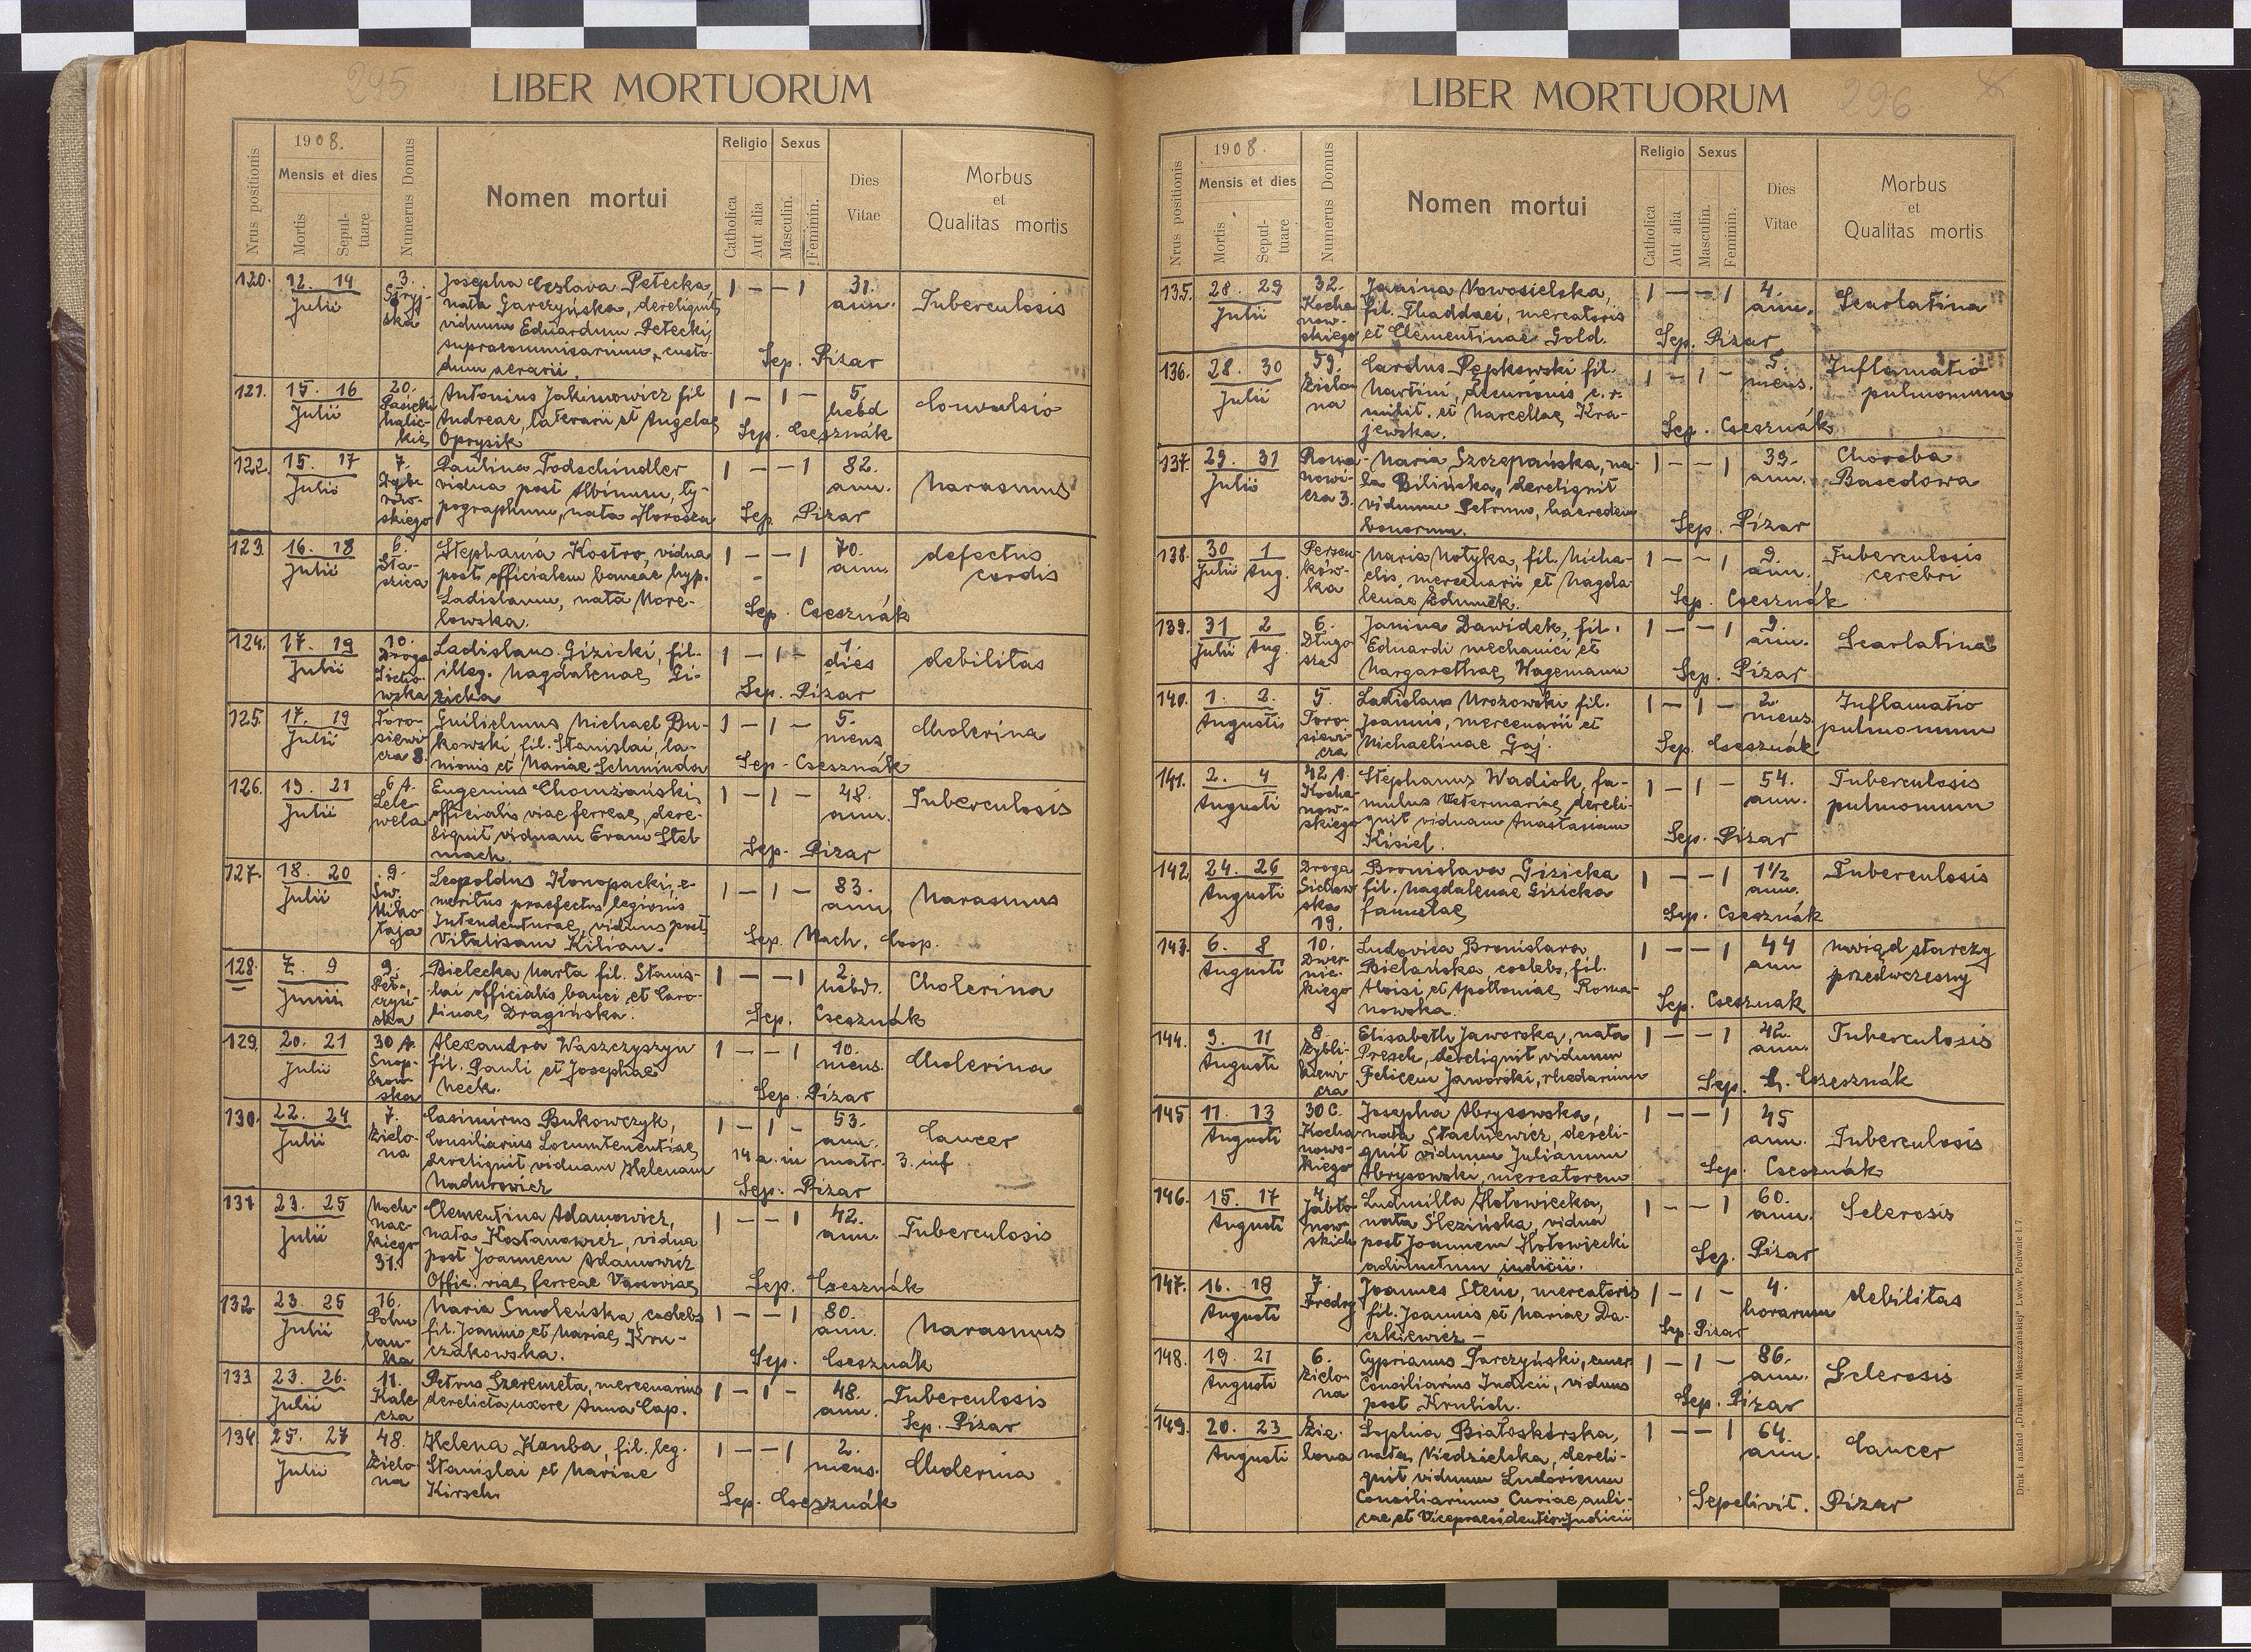 295
LIBER MORTUORUM
Nrus positionis
1908.
Mensis et dies
Mortis
Sepul-
tuare
Numerus Domus
Nomen mortui
Religio
Catholica
Aut alia
Sexus
Masculin.
Feminin.
Dies
Vitae
Morbus
et
Qualitas mortis
120. 12. 14 Julii 3. Stryj-
ska
Josepha Česlava Petecka,
nata Garczyńska, dereliquit
viduum Eduardum Petecki,
supracommisarium, custo-
dum aerarii.
1 — — 1 31. ann. Tuberculosis
Sep. Pizar
121. 15. 16 Julii 20. Pasieki
halic-
kie
Antonius Jakimowicz fil
Andreae, laterarii et Angelae
Oprysik
1 — 1 — 5. hebd Convulsio
Sep. Csesznák
122. 15. 17 Julii 7.
skiego
Paulina Todschindler
vidua post Albinum, ty-
pographum, nata Horosza
1 — — 1 82. ann. Marasmus
Sep. Pizar
123. 16. 18 Julii 6. Sta-
szica
Stephania Kostro, vidua
post officialem bancae hyp.
Ladislaum, nata More-
lowska.
1 — — 1 70. ann. defectus
cordis
Sep. Csesznák
124. 17. 19 Julii 10. Droga
Sicho-
wska
Ladislaus Gizicki, fil.
illeg. Magdalenae Gi-
zicka
1 — 1 — 1 dies debilitas
Sep. Pizar
125. 17. 19 Julii Toro-
siewi-
cza 8.
Guilielmus Michael Bu-
kowski, fil. Stanislai, la-
nionis et Mariae Schminda
1 — 1 — 5. mens Cholerina
Sep. Csesznák
126. 19. 21 Julii 6 A. Lele-
wela
Eugenius Chomzański,
officialis viae ferreae, dere-
liquit viduam Evam Stel
mach.
1 — 1 — 48. ann. Tuberculosis
Sep. Pizar
127. 18. 20 Julii 9. Św.
Miko
łaja
Leopoldus Konopacki, e-
meritus praefectus legionis
Intendenturae, viduus post
Vitalisam Kilian.
1 — 1 — 83. ann. Marasmus
Sep. Mach, Coop.
128. 7. 9 Junii 9. Peł-
czyń-
ska
Bielecka Marta fil. Stanis-
lai officialis banci et Caro-
linae Dragińska.
1 — — 1 2. hebd. Cholerina
Sep. Csesznák
129. 20. 21 Julii 30 A. Snop-
kow-
ska
Alexandra Waszczyszyn
fil. Pauli et Josephae
Neck.
1 — — 1 10. mens. Cholerina
Sep. Pizar
130. 22. 24 Julii 7. Zielo-
na
Casimirus Bukowczyk,
Consiliarius Locumtenentiae,
dereliquit viduam Helenam
Madurowicz
1 — 1 — 53. ann. Cancer
14 a. in matr. 3. inf
Sep. Pizar
131 23. 25 Julii Moch-
nac-
kiego
31.
Clementina Adamowicz,
nata Kostanowicz, vidua
post Joannem Adamowicz
Offic. viae ferreae Varsoviae
1 — — 1 42. ann. Tuberculosis
Sep. Csesznák
132. 23. 25 Julii 16. Potu
lan-
ka
Maria Smoleńska, caelebs
fil. Joannis et Mariae, Kru-
czakowska.
1 — — 1 80. ann. Marasmus
Sep. Csesznák
133 23. 26. Julii 11. Kale
cza
Petrus Szeremeta, mercenarius
derelicta uxore Anna Cap.
1 — 1 — 48. ann. Tuberculosis
Sep. Pizar
134. 25. 27 Julii 48. Zielo-
na
Helena Kauba, fil. leg.
Stanislai et Mariae
Kirsch.
1 — — 1 2. mens. Cholerina
Sep. Csesznák
LIBER MORTUORUM
296
Nrus positionis
1908.
Mensis et dies
Mortis
Sepul-
tuare
Numerus Domus
Nomen mortui
Religio
Catholica
Aut alia
Sexus
Masculin.
Feminin.
Dies
Vitae
Morbus
et
Qualitas mortis
135. 28. 29 Julii 32. Kocha
now-
skiego
Janina Nowosielska,
fil. Thaddaei, mercatoris
et Clementinae Gold.
1 — — 1 4. ann. Scarlatina
Sep. Pizar
136. 28. 30 Julii 59. Zielo
na
Carolus Pępkowski fil.
Martini, decurionis c. r.
milit. et Marcellae Kra-
jewska.
1 — 1 — 5. mens. Inflamatio
pulmonum
Sep. Csesznák
137. 29. 31 Julii Roma-
nowi-
cza 3.
Maria Szczepańska, na-
ta Bilińska, dereliquit
viduum Petrum, haeredem
bonorum.
1 — — 1 39. ann. Choroba
Basedowa
Sep. Pizar
138. 30 Julii 1 Aug. Persen-
ków-
ka
Maria Motyka, fil. Micha-
elis, mercenarii et Magda-
lenae Edmunek.
1 — — 1 9. ann. Tuberculosis
cerebri
Sep. Csesznák
139. 31 Julii 2 Aug. 6. Długo
sza
Janina Dawidek, fil.
Eduardi mechanici et
Margarethae Wagemann
1 — — 1 9. ann. Scarlatina
Sep. Pizar
140. 1. 2. Augusti 5. Toro-
siewi-
cza
Ladislaus Mrozowski fil.
Joannis, mercenarii et
Michaelinae Gaj.
1 — 1 — 2. mens. Inflamatio
pulmonum
Sep. Csesznák
141. 2. 4 Augusti 42 A. Kocha-
now-
skiego
Stephanus Wadiok, fa-
mulus Veterinariae, dereli-
quit viduam Anastasiam
Kisiel.
1 — 1 — 54. ann. Tuberculosis
pulmonum
Sep. Pizar
142. 24. 26 Augusti Droga
Sichow
ska
19.
Bronislava Gizicka
fil. Magdalenae Gizicka
famulae
1 — — 1 1 1/2 ann. Tuberculosis
Sep. Csesznák
143. 6. 8 Augusti 10. Dwer-
nic-
kiego
Ludovica Bronislava
Bielańska, coelebs, fil.
Aloisi et Apolloniae Roma-
nowska.
1 — — 1 44 ann Uwiąd starczy
przedwczesny
Sep. Csesznak
144. 9. 11 Augusti 8. Zybli-
kiewi-
cza
Elisabeth Jaworska, nata
Presch, dereliquit viduum
Felicem Jaworski, rhedarium
1 — — 1 42. ann. Tuberculosis
Sep. Csesznák
145 11. 13 Augusti 30 C. Kocha
nows-
kiego
Josepha Abrysowska,
nata Stachiewicz, dereli-
quit viduum Julianum
Abrysowski, mercatorem
1 — — 1 45 ann. Tuberculosis
Sep. Csesznák
146. 15. 17 Augusti 4. Jabło
now-
skich
Ludmilla Hołowiecka,
nata Slezińska, vidua
post Joannem Hołowiecki
adiunctum iudicii.
1 — — 1 60. ann. Sclerosis
Sep. Pizar
147. 16. 18 Augusti 7. Fredry
Joannes Stein, mercatoris
fil. Joannis et Mariae Da-
czkiewicz —
1 — 1 — 4. horarum debilitas
Sep. Pizar
148. 19. 21 Augusti 6. Zielo-
na
Cyprianus Tarczyński, emer.
Consiliarius Iudicii, viduus
post Krulich.
1 — 1 — 86. ann. Sclerosis
Sep. Pizar
149. 20. 23 Augusti Zie-
lona
Sophia Białoskórska,
nata Niedzielska, dereli-
quit viduum Ludovicum
Consiliarium Curiae auli-
cae et Vicepraesidentem Judicii
1 — — 1 64. ann. Cancer
Sepelivit. Pizar
Druk i nakład „Drukarni Mieszczańskiej" Lwów, Podwale l. 7.